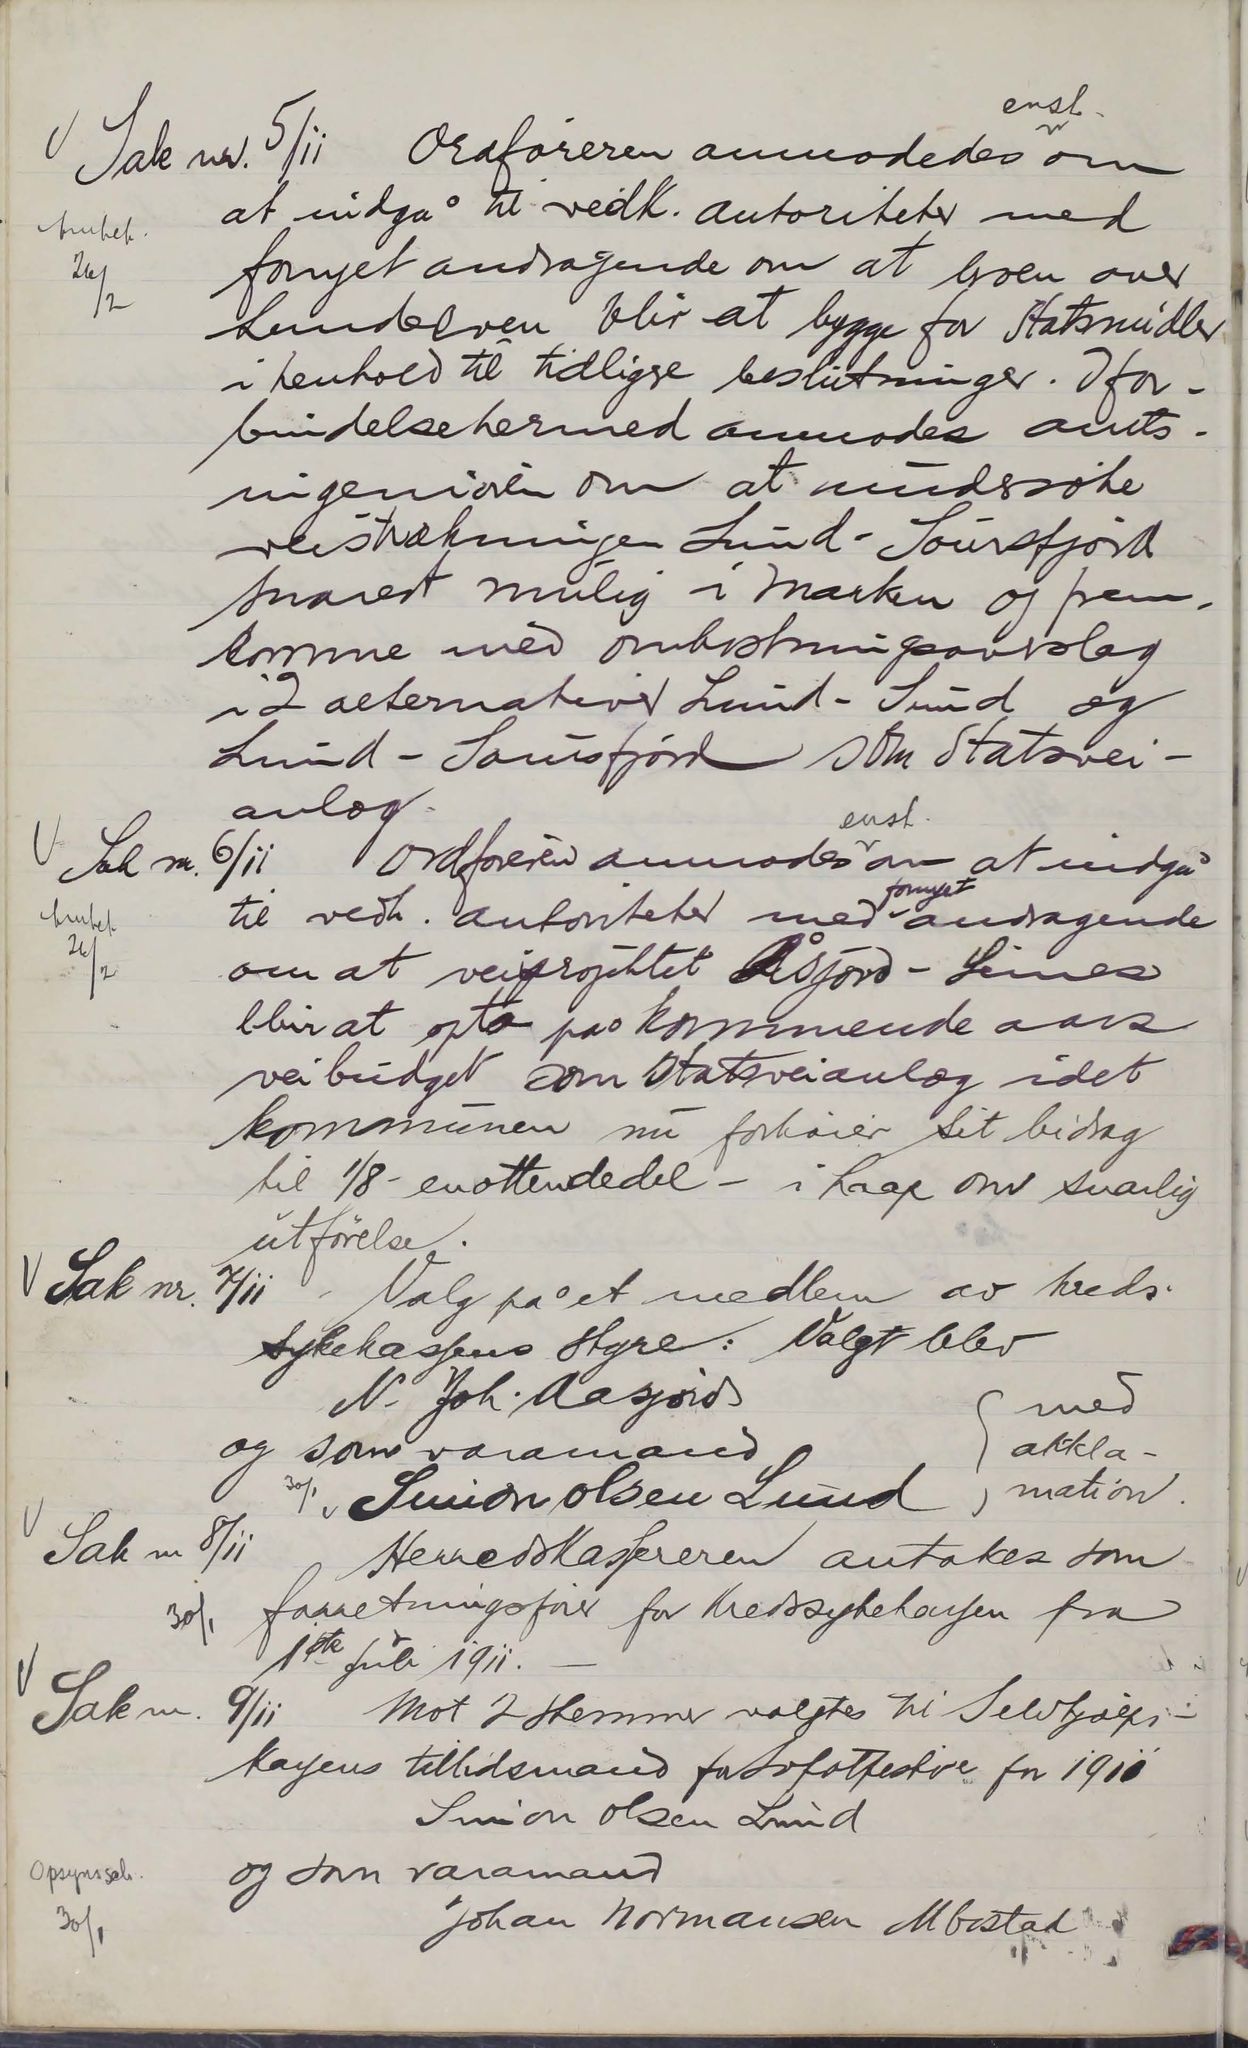 enst.
V Sak nr. 5/11 Ordføreren anmodedes om
at indgå til vedk. autoriteter med
26/2
fornyet andragende om at broen over
Lundelven blir at bygge for Statsmidler
i henhold til tidligere beslutninger. I for-
bindelse hermed anmodes amts-
ingeniøren om at undersøke
veistrækningen Lund-
snarest mulig i marken og frem-
komme med omkostningsoverslag
i 2 alternativer Lund - Sund og
Lund - som Statsvei-
anlæg.
enst.
V Sak nr. 6/11 Ordføreren anmodes om at indgå
fornyet
til vedk. autoriteter med andragende
26/2
om at veiprojektet Åsjord - Leines
blir at opta på kommende aars
veibudget som Statsveianlæg idet
kommunen nu forhøier sit bidrag
til 1/8 - enottendedel - i haap om snarlig
utførelse.
V Sak nr. 7/11 Valg på et medlem av kreds-
sykekassens styre: Valgt blev
N. Joh. Aasjord
og som varamand
med
akkla-
mation.
30/1 Simon Olsen Lund
V Sak nr 8/11 Herredskassereren antakes som
30/1 forretningsfører for Kredssykekassen fra
1ste juli 1911. -
V Sak nr. 9/11 Mot 2 stemmer valgtes til Selvhjælps-
kassens tillidsmand for Lofotfiske for 1911
Simon Olsen Lund
Opsynssch.
30/1
og som varamand
Johan Normansen Mbostad